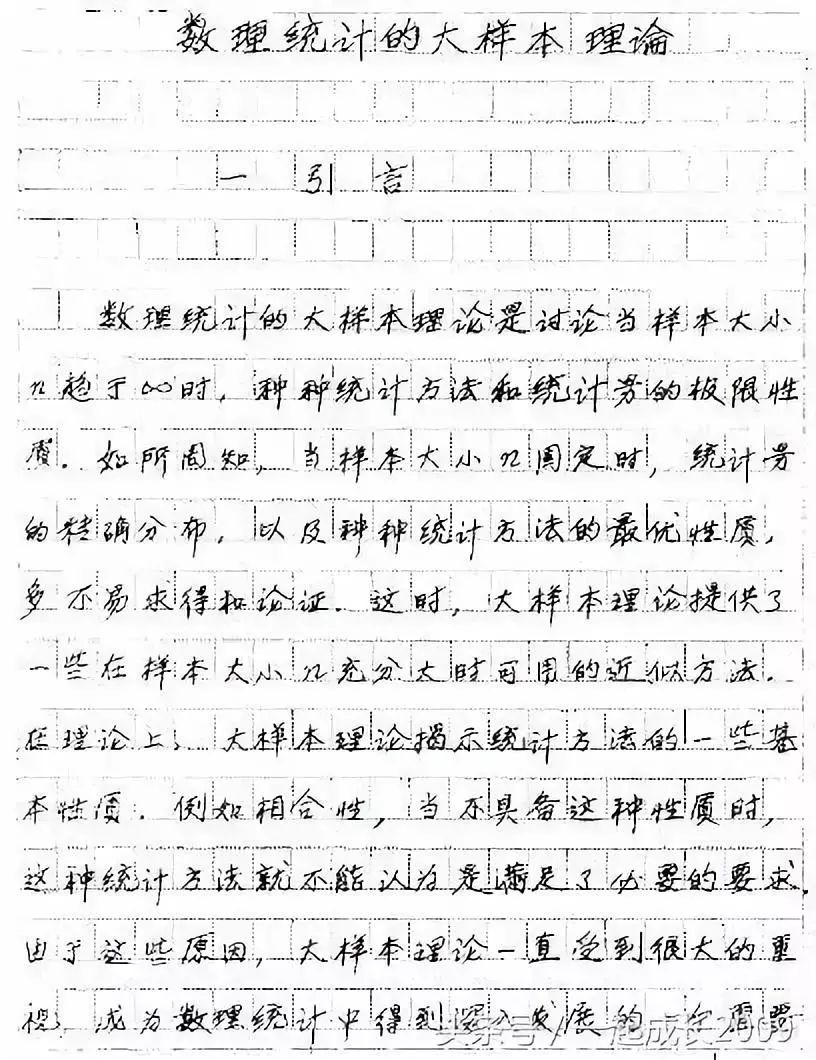 数理统计的大样本理論
一 引言
数理统计的大样本理论是讨论当样本大小
n趋于∞时,种种统计方法和统计劳的极限性
质.如所周知,当样本大小n固定时,统计劳
的精确分布,以及种种统计方法的最优性质,
多不易求得和论证.这时,大样本理论提供了
一些在样本大小n充分大时可用的近似方法.
在理论上,大样本理论揭示统计方法的一些基
本性质.例如相合性,当不具备这种性质时,
这种统计方法就不能认为是满足了必要的要求.
由于这些原因,大样本理论一直受到很大的重
视,成为数理统计中得到深入发展的一个